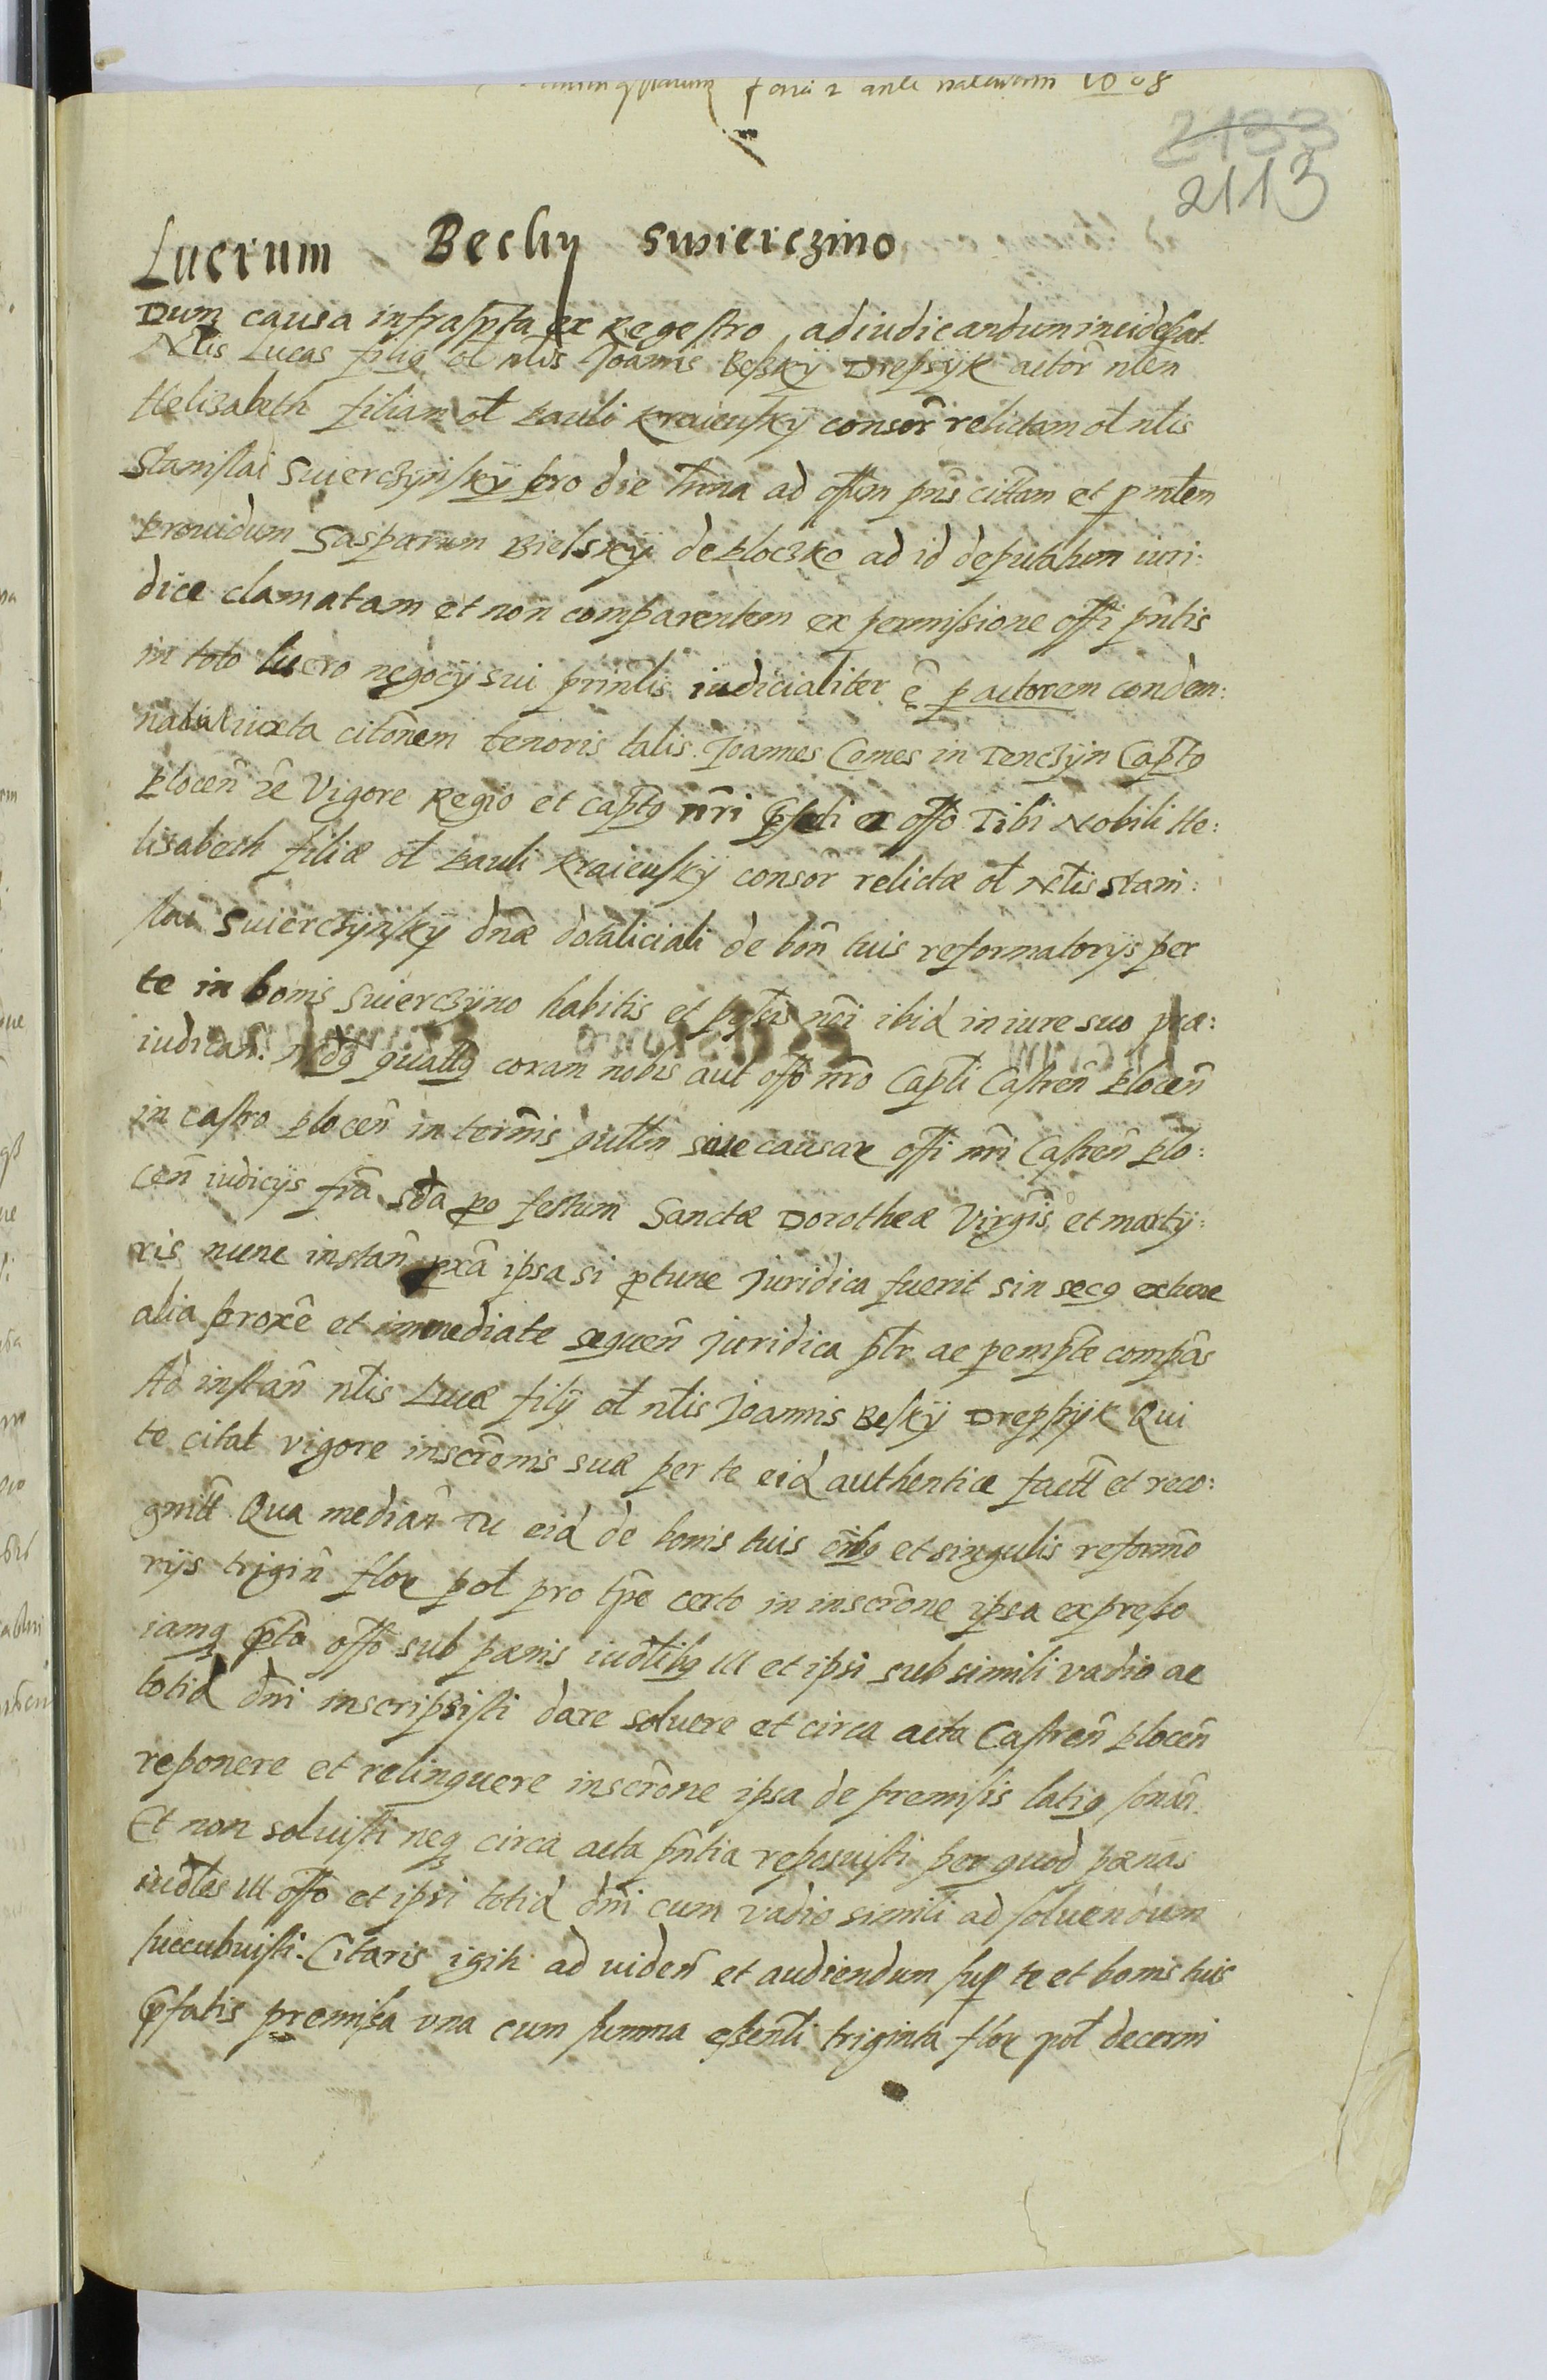 feria 2 ante
2133
2113
Lucrum Besky Swierczino
Dum causa infrascpta ex Regestro adiudicandum incidebat
Nlis Lucas filig ol nlis Joannis Besky Drepsyk actor nlem
Helizabeth filiam ol Pauli Kraieusky consor relictam ol nlis
Stanislai Suierczynsky pro die hrna ad offm pns cittam et p mlem
prouidum Gasparum Bielsky de Ploczko ad id deputatum iuri:
dice clamatam et non comparentem ex permissione offi pntis
in toto lucro negocy sui prinlis iudicialiter e p actorem condem:
natal iuxta citonem tenoris talis. Joannes Comes in Tenczyn Captg
Plocen re Vigore Regio et captg nri pfecti ex offo Tibi Nobili He:
lisabeth filiæ ol Pauli Kraieusky consor relictæ ol Nlis Stani:
slai Suierczynsky dnæ dotaliciali de bon tuis reformatorys per
te in bonis Suierczyno habitis et nri ibid in iure suo præ:
iudican. coram nobis aut offo nro Capti Castren Plocen
in castro Plocen in termis qulln siue causar offi nri Castren Plo:
cen iudicys fria sda po festum Sanctæ Dorotheæ Virgis et marty:
ris nunc instan pxa ipsa si ptunc Juridica fuerit sin secg extunc
alia proxe et immediate sequen Juridica ptr ac pempte compas
Ad instan nlis Lucæ fily ol nlis Joannis Besky Drepsyk Qui
te citat vigore inscronis suæ per te eid authentice factt et reco:
gnitt Qua median Tu eid de bonis tuis oibg et singulis reformo
rys trigin flor pol pro tpe certo in inscrone ipsa expresso
iamg pto offo sub pænis iudlibg III et ipsi sub simili vadio ac
totid dni inscripsisti dare soluere et circa acta Castren Plocen
reponere et relinquere inscrone ipsa de premisis latig sonan.
Et non soluisti neq circa acta pntia reposuisti per quod pænas
iudles III offo et ipsi totid dni cum vadio simili ad soluendum
succubuisti. Citaris igitr ad viden et audiendum sup te et bonis tuis
pfatis premissa vna cum summa essenli triginta flor pol decerni